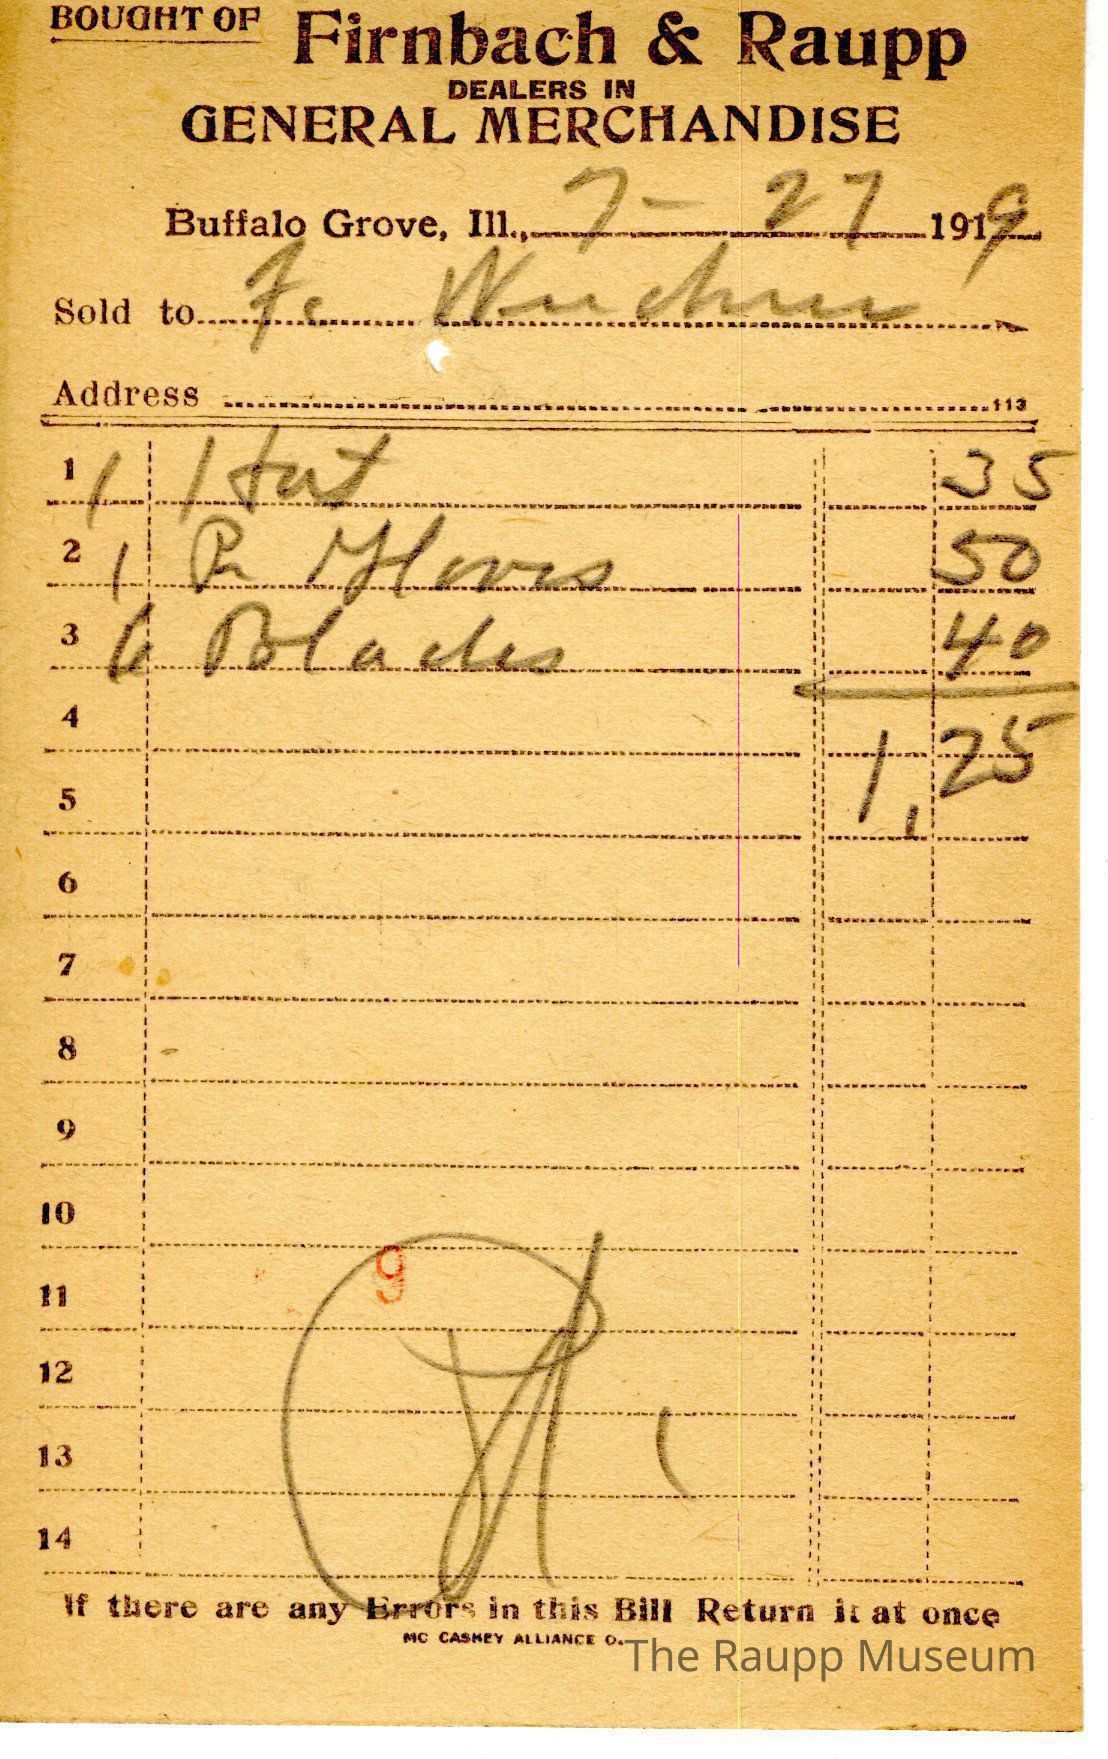 BOUGHT OF Firnbach & Raupp
DEALERS IN
GENERAL MERCHANDISE
Buffalo Grove, Ill., 7- 27 1919
Sold to
Address 113
1 1 Hat 35
2 1 Pr Gloves 50
3 6 Blades 40
4
1,25
5
6
7
8
9
10
9
11
12
13
14
If there are any Errors in this Bill Return it at once
MC CASKEY ALLIANCE O.
The Raupp Museum